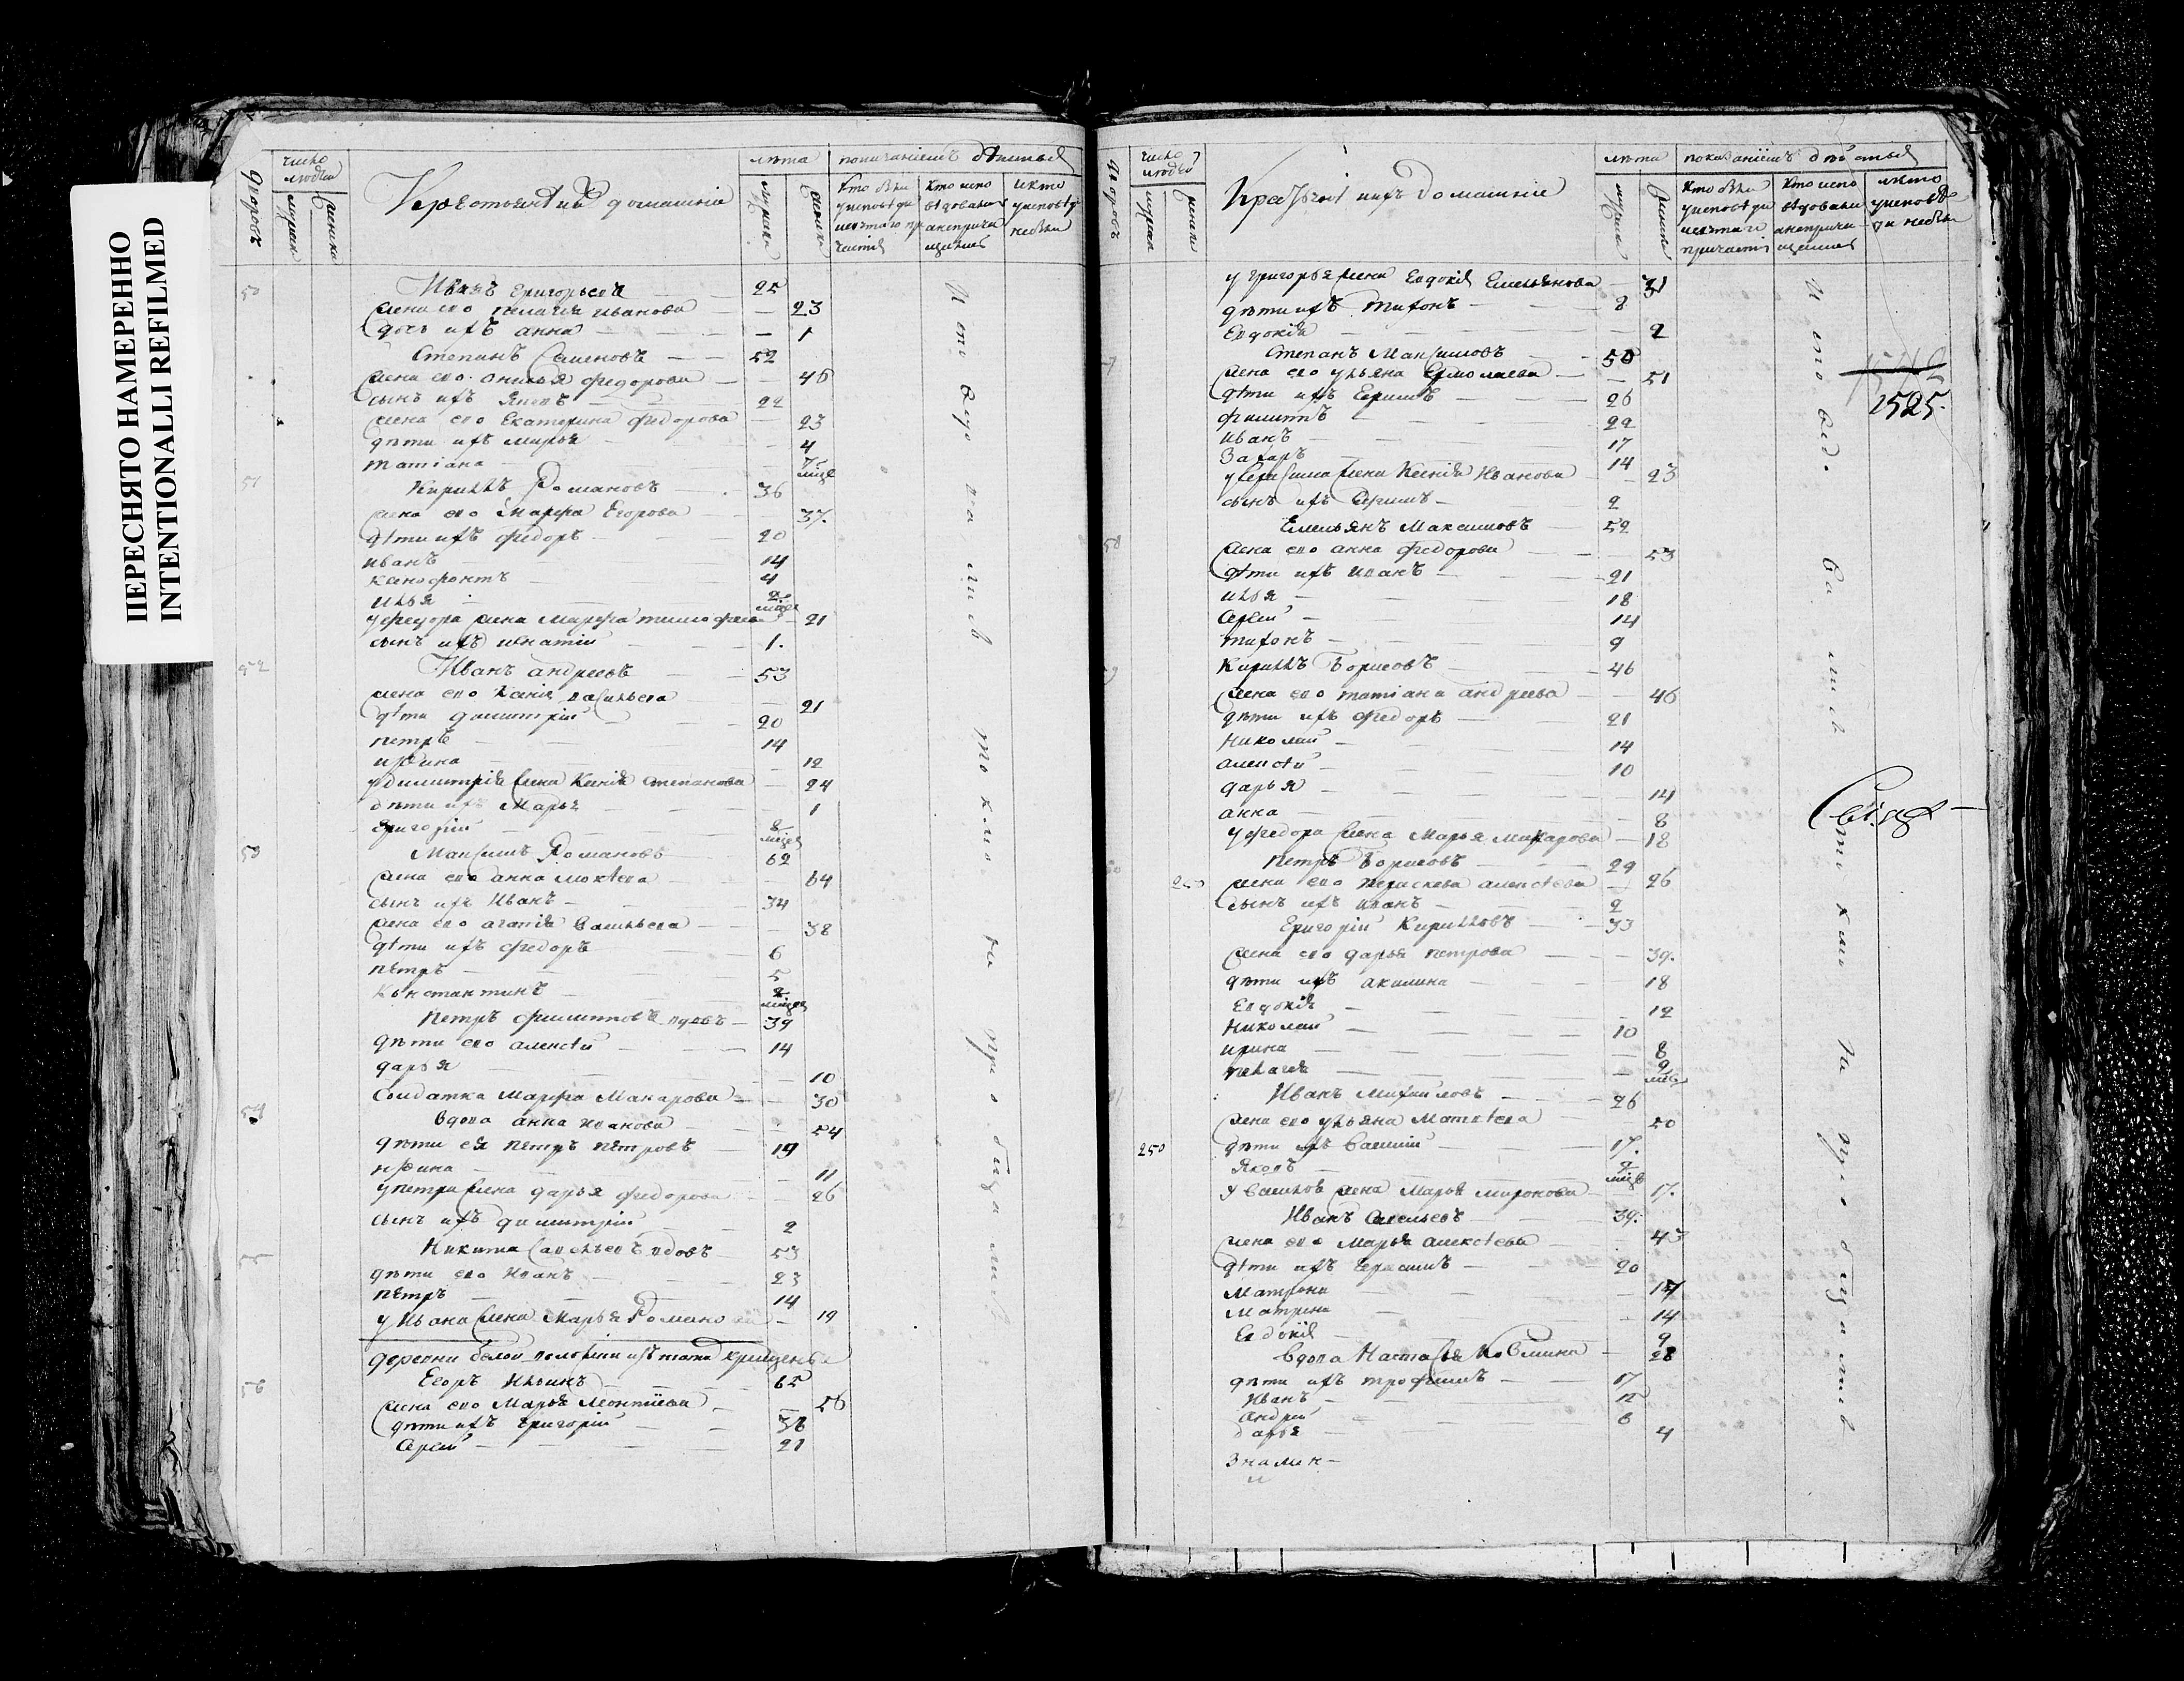 ПЕРЕСНЯТО НАМЕРЕННО
INTENTIONALLI REFILMED
дворовъ
число людей
мужска
женска
Крестьяне и ихъ домашнiе
лѣта
мужска
женска
показанiемъ дѣйства
кто были у исповѣди и святаго причастiя
кто исповѣдовались а не причащались
и кто у исповѣди не были
50 Иванъ Григорьевъ 25
жена его Пелагiя Иванова 23
дочь ихъ Анна 1
Степанъ Семеновъ 52
жена его Федорова 46
сынъ ихъ Яковъ 22
жена его Екатерина Федорова 23
дѣти ихъ Марья 4
Татiана мѣце
51 Кириллъ Романовъ 36
жена его Марфа Егорова 37.
дѣти ихъ Федоръ 20
Иванъ 14
Ксенофонтъ 4
Илья 2 мѣце
у Федора жена Марфа Тимофеева 21
сынъ ихъ Игнатiй 1.
52 Иванъ Андреевъ 53
жена его Васильева 21
дѣти Димитрiй 20
Петръ 14
Ирина 12
у Димитрiя жена Ксенiя Степанова 24
дѣти ихъ Марья 1
Григорiй 8 мѣце
53 Максимъ Романовъ 62
жена его Анна Мокѣева 64
сынъ ихъ Иванъ 34
жена его Агапiя Васильева 38
дѣти ихъ Федоръ 6
Петръ 5
Константинъ 2 мѣце
Петръ Филипповъ вдовъ 39
дѣти его Алексѣй 14
Дарья 10
Солдатка Марфа Макарова 30
54 Вдова Анна Иванова 54
дѣти ея Петръ Петровъ 19
Ирина 11
у Петра жена Дарья Федорова 26
сынъ ихъ Димитрiй 2
55 Никита Савельевъ вдовъ 53
дѣти его Иванъ 23
Петръ 14
у Ивана жена Марья Романова 19
деревни Белой
56 Егоръ Ильинъ 65
жена его Марья Леонтiева 56
дѣти ихъ Григорiй 38
Сергей 21
Исповѣдовались токмо и прiобщались
дворовъ
число людей
мужска
женска
Крестьяне и ихъ домашнiе
лѣта
мужска
женска
показанiемъ дѣйства
кто были у исповѣди и святаго причастiя
кто исповѣдовались а не причащались
и кто у исповѣди не были
у Григорья жена Евдокiя Емельянова 31
дѣти ихъ Тихонъ 8
Евдокiя 2
Степанъ Максимовъ 50
жена его Ульяна Ермолаева 51
дѣти ихъ 26
Филиппъ 22
Иванъ 17
Захаръ 14
жена Ксенiя Иванова 23
сынъ ихъ 2
58 Емельянъ Максимовъ 52
жена его Анна Федорова 53
дѣти ихъ Иванъ 21
Илья 18
Сергей 14
Тихонъ 9
Кириллъ Борисовъ 46
жена его Татiана Андреева 46
дѣти ихъ Федоръ 21
Николай 14
Алексѣй 10
Дарья 14
Анна 8
у Федора жена Марья Макарова 18
Петръ Борисовъ 29
жена его Параскева Алексѣева 26
сынъ ихъ Иванъ 2
Григорiй Кирилловъ 33
жена его Дарья Петрова 39.
дѣти ихъ Акилина 18
Евдокiя 12
Николай 10
Ирина 8
Пелагея 9 мѣце
Иванъ Михайловъ 26
жена его Ульяна Матвѣева 50
250 дѣти ихъ Василiй 17.
Яковъ 2 мѣце
у Василья жена Марья Миронова 17.
Иванъ Савельевъ 39.
жена его Марья Алексѣева 43
дѣти ихъ 20
Матрена
Матрена 14
Евдокiя 9
Вдова Настасья Козмина 28
дѣти ихъ Трофимъ 17
Иванъ 12
Андрей 6
Дарья 4
2525.
Исповѣдовались токмо и прiобщались